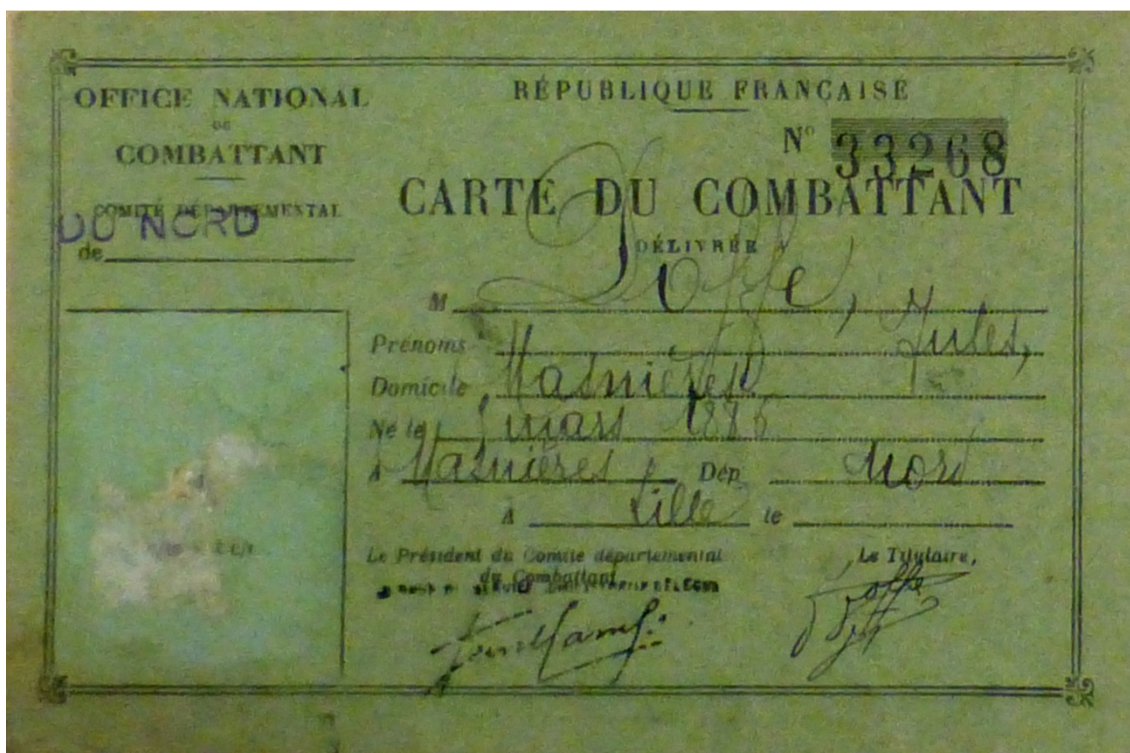 OFFICE NATIONAL
DU
COMBATTANT
COMITÉ DÉPARTEMENTAL
DU NORD
de
RÉPUBLIQUE FRANÇAISE
N° 33268
CARTE DU COMBATTANT
DÉLIVRÉE
M Doffe,
Prénoms Jules,
Domicile Masnières
Né le mars 1886
à Masnières Dép Nord
A Lille le
Le Président du Comité départemental
du Combattant
Le Titulaire,
Doffe